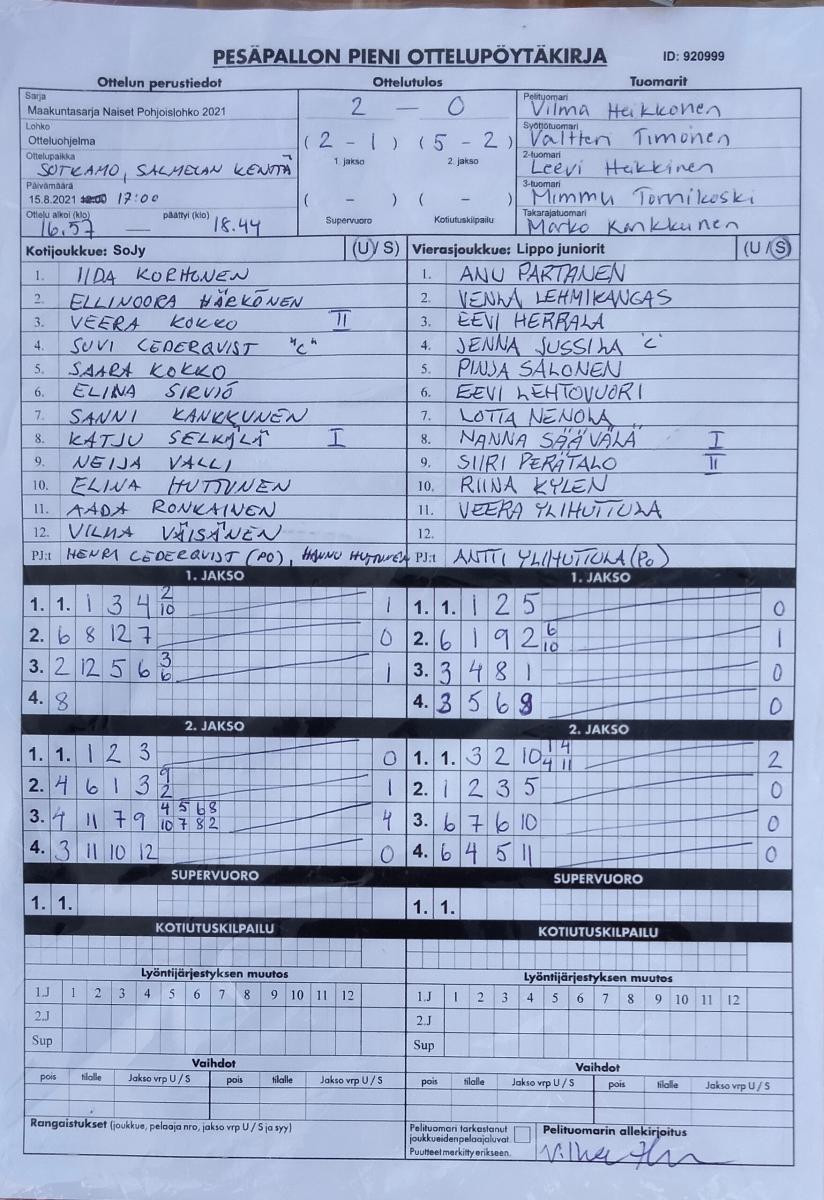 PESÄPALLON PIENI OTTELUPÖYTÄKIRJA ID: 920999
Ottelun perustiedot Ottelutulos Tuomarit
Sarja
Maakuntasarja Naiset Pohjoislohko 2021
Lohko
Otteluohjelma
Ottelupaikka
SOTKAMO, SALMELAN KENTTÄ
Päivämäärä
15.8.2021 12:00 17:00
Ottelu alkoi (klo) päättyi (klo)
16.57 — 18.44
2 — 0
(2 - 1) (5 - 2)
1. jakso 2. jakso
( - ) ( - )
Supervuoro Kotiutuskilpailu
Pelituomari
Vilma Heikkonen
Syöttötuomari
Valtteri Timonen
2-tuomari
Leevi Heikkinen
3-tuomari
Mimmu Tornikoski
Takarajatuomari
Marko Kankkunen
Kotijoukkue: SoJy (U / S) Vierasjoukkue: Lippo juniorit (U / S)
1. IIDA KORHONEN 1. ANU PARTANEN
2. ELLINOORA HÄRKÖNEN 2. VENLA LEHMIKANGAS
3. VEERA KOKKO II 3. EEVI HERRALA
4. SUVI CEDERQVIST "C" 4. JENNA JUSSILA 'C'
5. SAARA KOKKO 5. PINJA SALONEN
6. ELINA SIRVIÖ 6. EEVI LEHTOVUORI
7. SANNI KANKKUNEN 7. LOTTA NENOLA
8. KATJU SELKÄLÄ I 8. NANNA SÄÄVÄLÄ I
9. NEIJA VALLI 9. SIIRI PERÄTALO II
10. ELINA HUTTUNEN 10. RIINA KYLEN
11. AADA RONKAINEN 11. VEERA YLIHUTTULA
12. VILMA VÄISÄNEN 12.
PJ:t HENRI CEDERQVIST (PO), HANNU HUTTUNEN PJ:t ANTTI YLIHUTTULA (PO)
1. JAKSO 1. JAKSO
1. 1. 1 3 4 2 10 1 1. 1. 1 2 5 0
2. 6 8 12 7 0 2. 6 1 9 2 6 10 1
3. 2 12 5 6 3 6 1 3. 3 4 8 1 0
4. 8 4. 3 5 6 0
2. JAKSO 2. JAKSO
1. 1. 1 2 3 0 1. 1. 3 2 10 1 4 4 11 2
2. 4 6 1 3 9 2 1 2. 1 2 3 5 0
3. 4 11 7 9 4 5 6 8 10 7 8 2 4 3. 6 7 6 10 0
4. 3 11 10 12 0 4. 6 4 5 11 0
SUPERVUORO SUPERVUORO
1. 1. 1. 1.
KOTIUTUSKILPAILU KOTIUTUSKILPAILU
Lyöntijärjestyksen muutos Lyöntijärjestyksen muutos
1.J 1 2 3 4 5 6 7 8 9 10 11 12 1.J 1 2 3 4 5 6 7 8 9 10 11 12
2.J 2.J
Sup Sup
Vaihdot Vaihdot
pois tilalle Jakso vrp U / S pois tilalle Jakso vrp U / S pois tilalle Jakso vrp U / S pois tilalle Jakso vrp U / S
Rangaistukset (joukkue, pelaaja nro, jakso vrp U / S ja syy)
Pelituomari tarkastanut
joukkueiden pelaajaluvat.
Puutteet merkitty erikseen.
Pelituomarin allekirjoitus